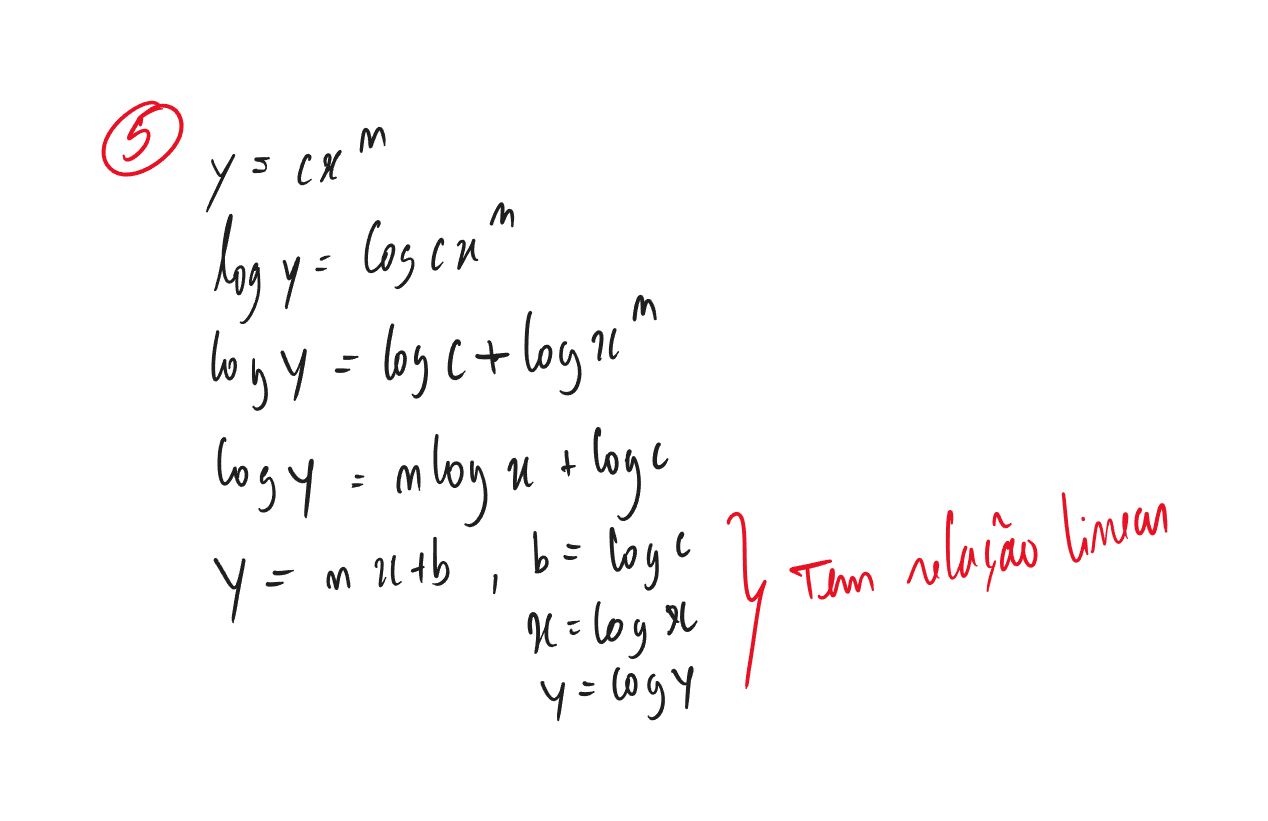 5
y = cx^m
log y = log cx^m
log y = log c + log x^m
log y = m log x + log c
y = m x + b , b = log c
x = log x
y = log y
Tem relação linear